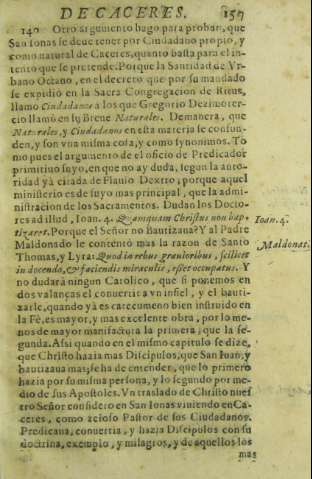 DE CACERES. 157
140 Otro argumento hago para probar, que
San Ionas se deue tener por Ciudadano propio, y
como natural de Caceres, quanto basta para el in-
tento que se pretende. Porque la Santidad de Vr-
bano Octauo, en el decreto que por su mandado
se expidiò en la Sacra Congregacion de Ritus,
llamo Ciudadanos a los que Gregorio Dezimoter-
cio llamò en su Breue Naturales. Demanera, que
Naturales, y Ciudadanos en esta materia se confun-
den, y son vna misma cosa, y como synonimos. To
mo pues el argumento de el oficio de Predicador
primitiuo suyo, en que no ay duda, segun la auto-
ridad yà citada de Flauio Dextro; porque aquel
ministerio es de suyo mas principal, que la admi-
nistracion de los Sacramentos. Dudan los Docto-
res ad illud, Ioan. 4. Quamquam Christus non bap-
tizaret. Porque el Señor no Bautizaua? Y al Padre
Maldonado le contentò mas la razon de Santo
Thomas, y Lyra: Quod in rebus grauioribus, scilicet
in docendo, & faciendis miraculis, esset occupatus. Y
no dudarà ningun Catolico, que si ponemos en
dos valanças el conuertir a vn infiel, y el bauti-
zarle, quando yà es catecumeno bien instruido en
la Fè, es mayor, y mas excelente obra, por lo me-
nos de mayor manifactura la primera, que la se-
gunda. Assi quando en el mismo capitulo se dize,
que Christo hazia mas Discipulos, que San Iuan, y
bautizaua mas, se ha de entender, que lo primero
hazia por su misma persona, y lo segundo por me-
dio de sus Apostoles. Vn traslado de Christo nues
tro Señor considero en San Ionas viuiendo en Ca-
ceres, como zeloso Pastor de sus Ciudadanos.
Predicaua, conuertia, y hazia Discipulos con su
doctrina, exemplo, y milagros, y de aquellos los
mas
Ioan. 4.
Maldonat.